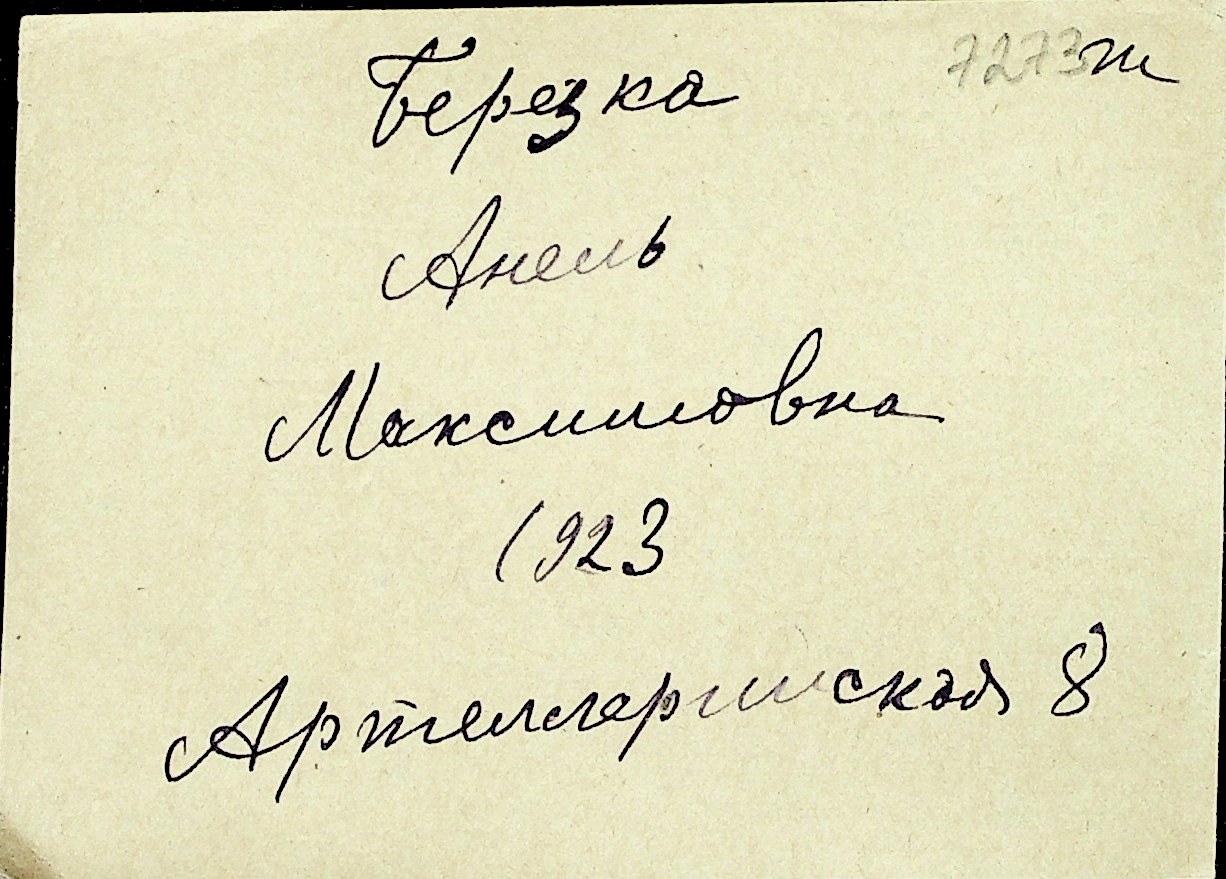 7273т
Березка
Анель
Максимовна
1923
Артеллерийская 8